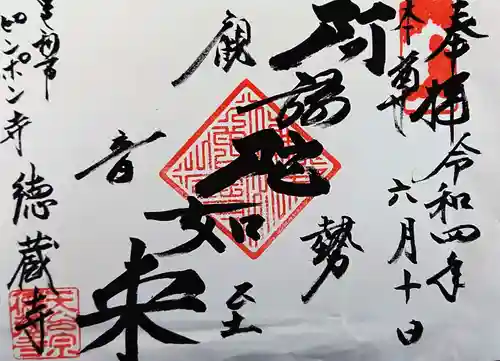 奉拝 令和四年
本尊 六月十日
阿弥陀如来
勢至
観音
ピンポン寺
徳蔵寺